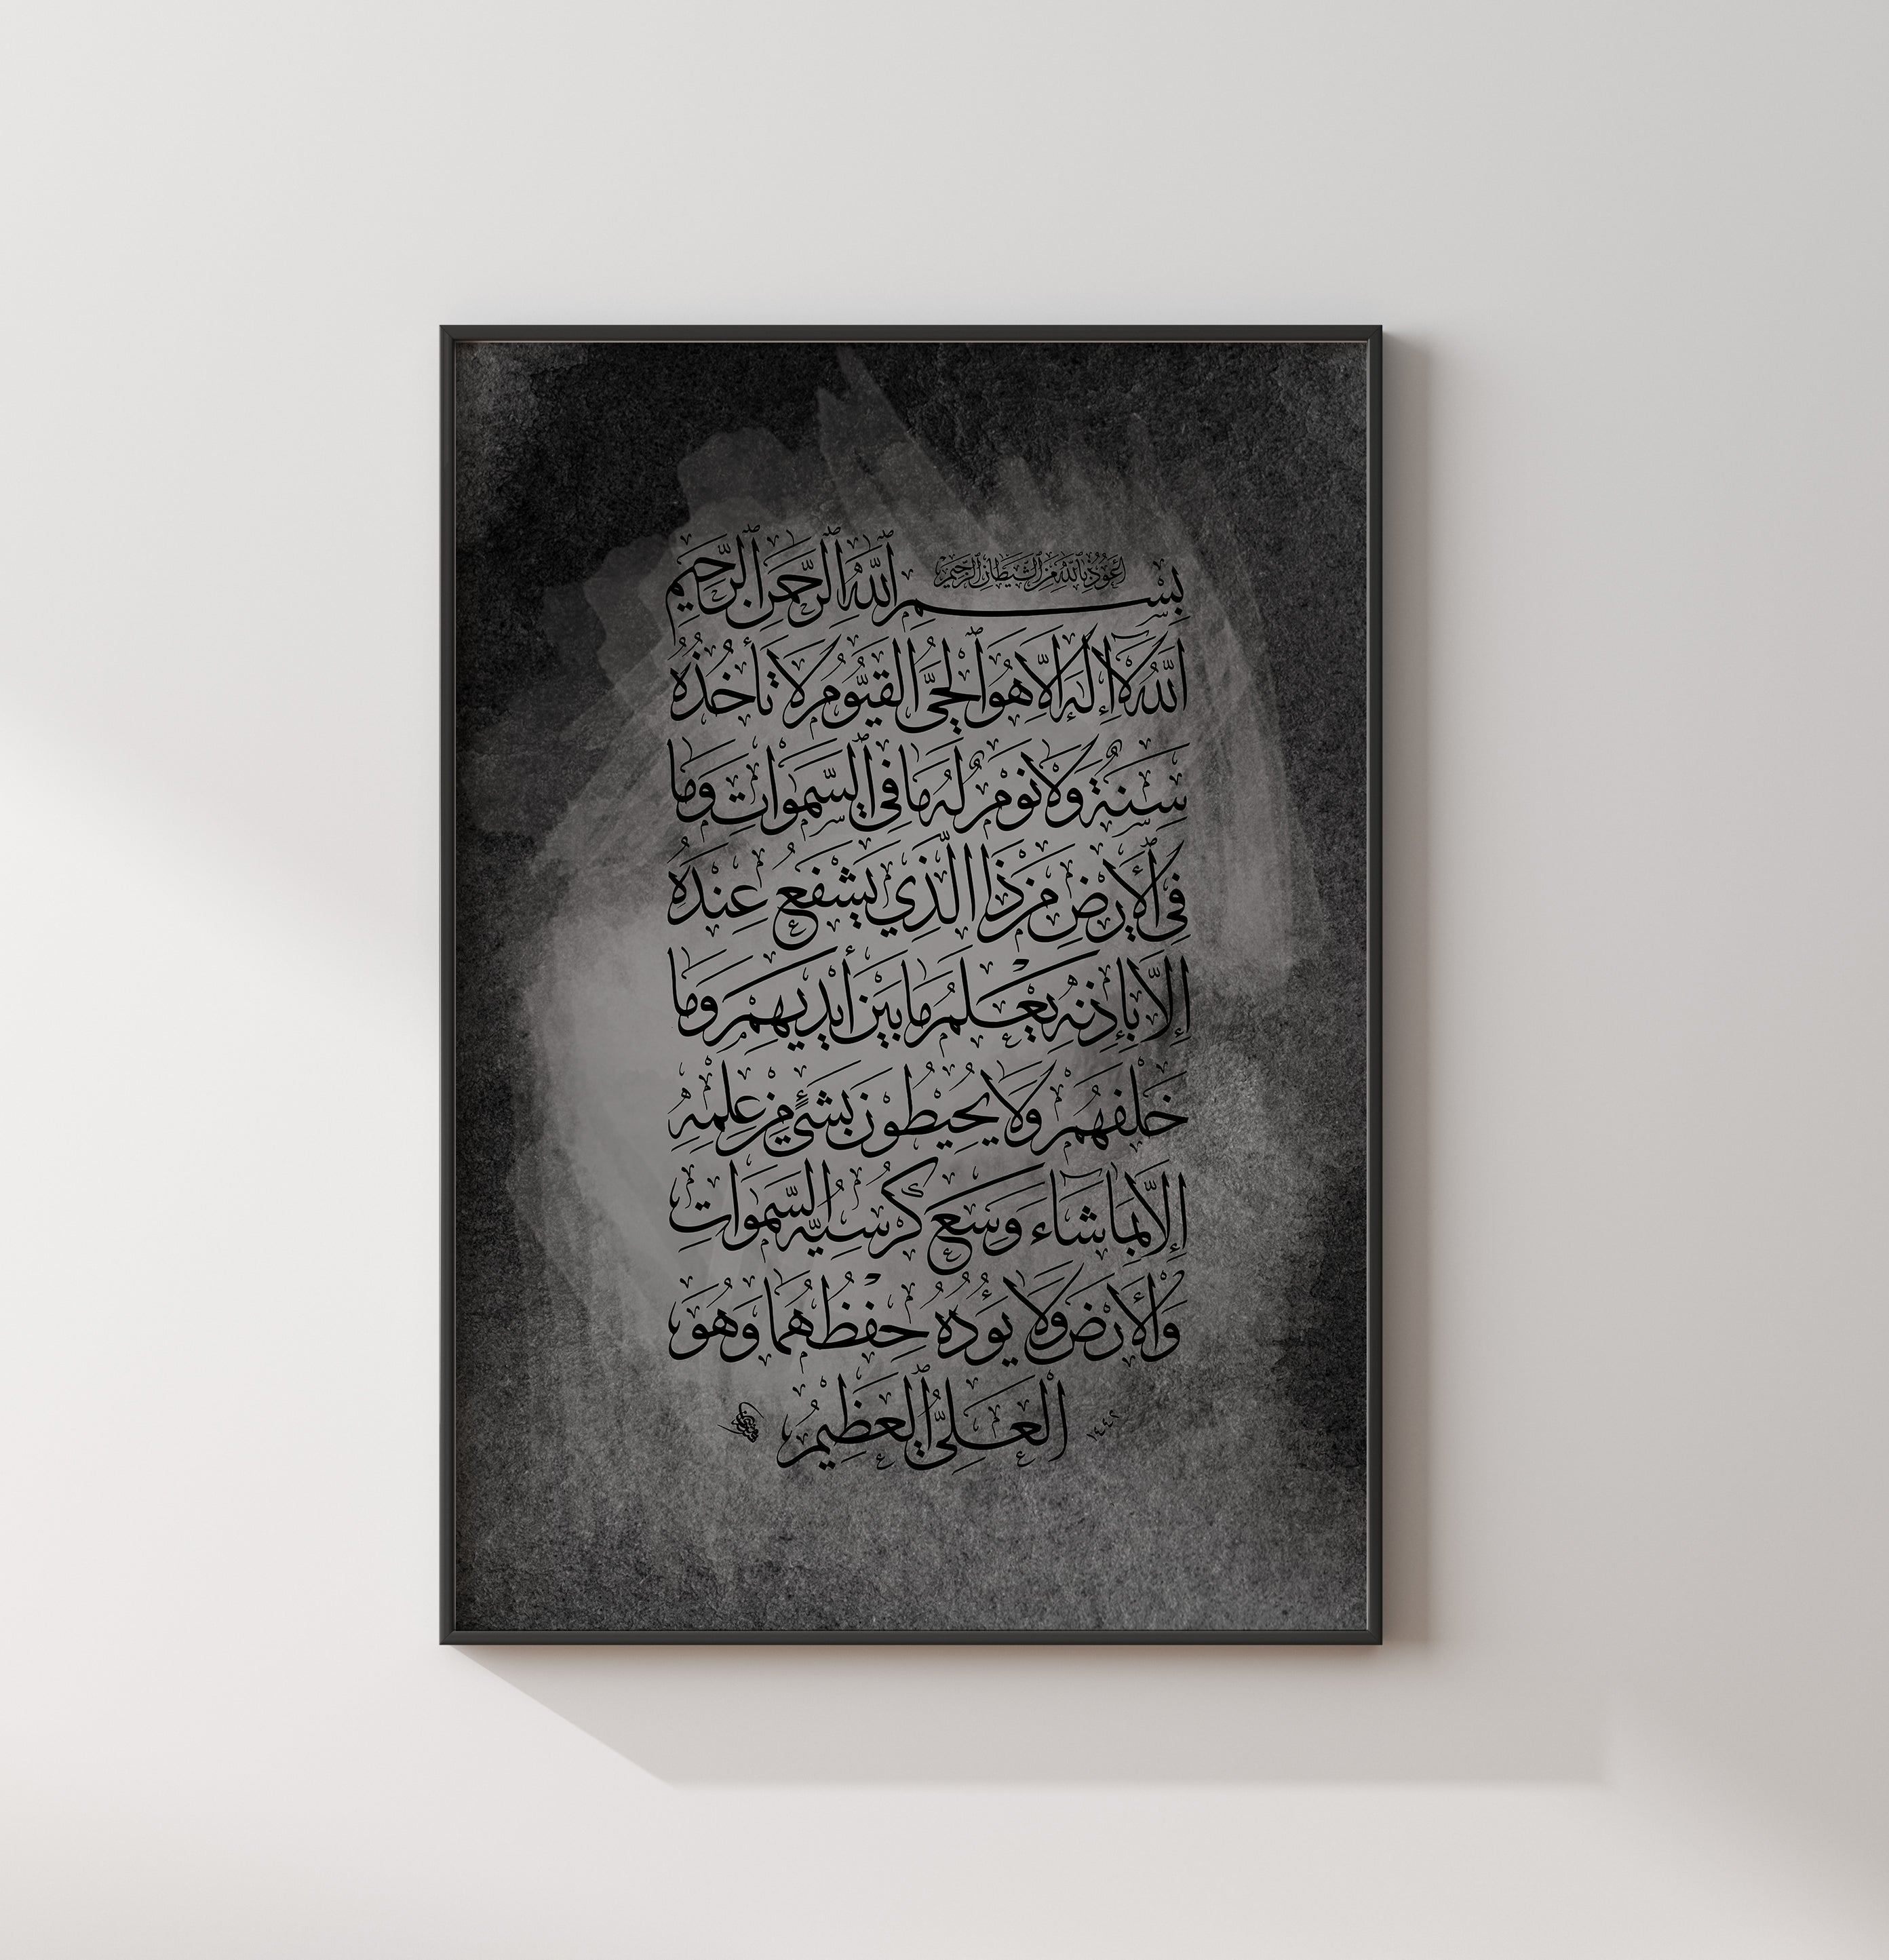 أعوذ بالله من الشيطان الرجيم
بسم الله الرحمن الرحيم
الله لا إله إلا هو الحي القيوم لا تأخذه
سنة ولا نوم له ما في السموات وما
في الأرض من ذا الذي يشفع عنده
إلا بإذنه يعلم ما بين أيديهم وما
خلفهم ولا يحيطون بشيء من علمه
إلا بما شاء وسع كرسيه السموات
والأرض ولا يؤده حفظهما وهو
العلي العظيم
١٤٤٢